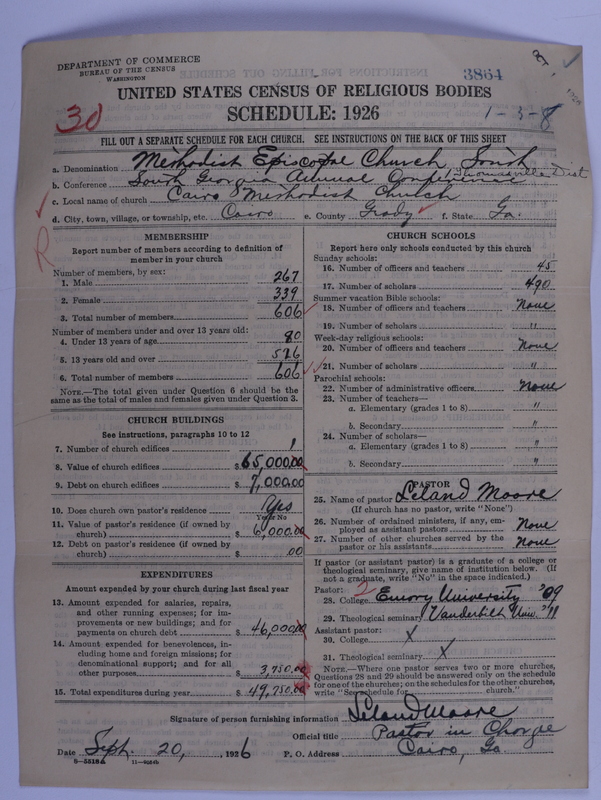 DEPARTMENT OF COMMERCE
BUREAU OF THE CENSUS
WASHINGTON
3864
UNITED STATES CENSUS OF RELIGIOUS BODIES
SCHEDULE: 1926
30
1-3-8
FILL OUT A SEPARATE SCHEDULE FOR EACH CHURCH. SEE INSTRUCTIONS ON THE BACK OF THIS SHEET
a. Denomination Methodist Episcopal Church, South
b. Conference South Georgia Annual Conference Thomasville Dist
c. Local name of church Cairo Methodist Church
d. City, town, village, or township, etc. Cairo e. County Grady f. State Ga.
R
MEMBERSHIP
Report number of members according to definition of
member in your church
Number of members, by sex:
1. Male 267
2. Female 339
3. Total number of members 606
Number of members under and over 13 years old:
4. Under 13 years of age 80
5. 13 years old and over 526
6. Total number of members 606
NOTE.—The total given under Question 6 should be the
same as the total of males and females given under Question 3.
CHURCH BUILDINGS
See instructions, paragraphs 10 to 12
7. Number of church edifices 1
8. Value of church edifices $65,000.00
9. Debt on church edifices $7,000.00
10. Does church own pastor's residence Yes
Yes or No
11. Value of pastor's residence (if owned by
church) $6,000.00
12. Debt on pastor's residence (if owned by
church) $ .00
EXPENDITURES
Amount expended by your church during last fiscal year
13. Amount expended for salaries, repairs,
and other running expenses; for im-
provements or new buildings; and for
payments on church debt $46,000.00
14. Amount expended for benevolences, in-
cluding home and foreign missions; for
denominational support; and for all
other purposes $3,750.00
15. Total expenditures during year $49,750.00
CHURCH SCHOOLS
Report here only schools conducted by this church
Sunday schools:
16. Number of officers and teachers 45
17. Number of scholars 490
Summer vacation Bible schools:
18. Number of officers and teachers None
19. Number of scholars "
Week-day religious schools:
20. Number of officers and teachers None
21. Number of scholars "
Parochial schools:
22. Number of administrative officers None
23. Number of teachers—
a. Elementary (grades 1 to 8) "
b. Secondary "
24. Number of scholars—
a. Elementary (grades 1 to 8) "
b. Secondary "
PASTOR
25. Name of pastor Leland Moore
(If church has no pastor, write "None")
26. Number of ordained ministers, if any, em-
ployed as assistant pastors None
27. Number of other churches served by the
pastor or his assistants None
If pastor (or assistant pastor) is a graduate of a college or
theological seminary, give name of institution below. (If
not a graduate, write "No" in the space indicated.)
Pastor: 2
28. College Emory University '09
29. Theological seminary Vanderbilt Univ. '11
Assistant pastor:
30. College X
31. Theological seminary X
NOTE.—Where one pastor serves two or more churches,
Questions 28 and 29 should be answered only on the schedule
for one of the churches; on the schedules for the other churches,
write "See schedule for church."
Signature of person furnishing information Leland Moore
Official title Pastor in Charge
Date Sept. 20, 1926 P. O. Address Cairo, Ga.